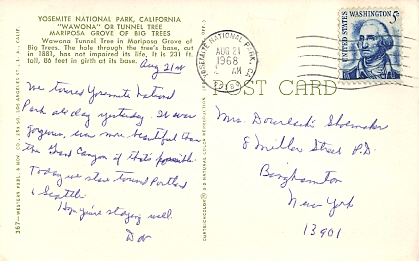 YOSEMITE NATIONAL PARK, CALIFORNIA
"WAWONA" OR TUNNEL TREE
MARIPOSA GROVE OF BIG TREES
Wawona Tunnel Tree in Mariposa Grove of
Big Trees. The hole through the tree's base, cut
in 1881, has not impaired its life. It is 231 ft.
tall, 86 feet in girth at its base.
Aug 21st
We toured Yosemite National
Park all day yesterday. It was
gorgeous, even more beautiful than
the Grand Canyon if that's possible.
Today we start toward Portland
& Seattle.
Hope you're staying well.
YOSEMITE NATIONAL PARK, CA
AUG 21
AM
1968
U.S. POSTAGE
WASHINGTON
5c
POST CARD
Mrs. Shoemaker
8 Miller Street P.D.
Binghamton
New York
13901